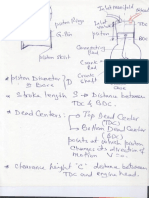 piston Rings
G. Pin
piston skirt
Inlet manifold
Inlet valve
TDC
BDC
Connecting Rod
Crank
Crank Shaft
* piston Diameter & Bore } D
* Stroke length S → Distance between TDC & BDC
* Dead Centers:
→ Top Dead Center (TDC)
→ Bottom Dead Center (BDC)
points at which piston
changes its direction of
motion V =
* Clearance height 'C' distance between
TDC and engine head.